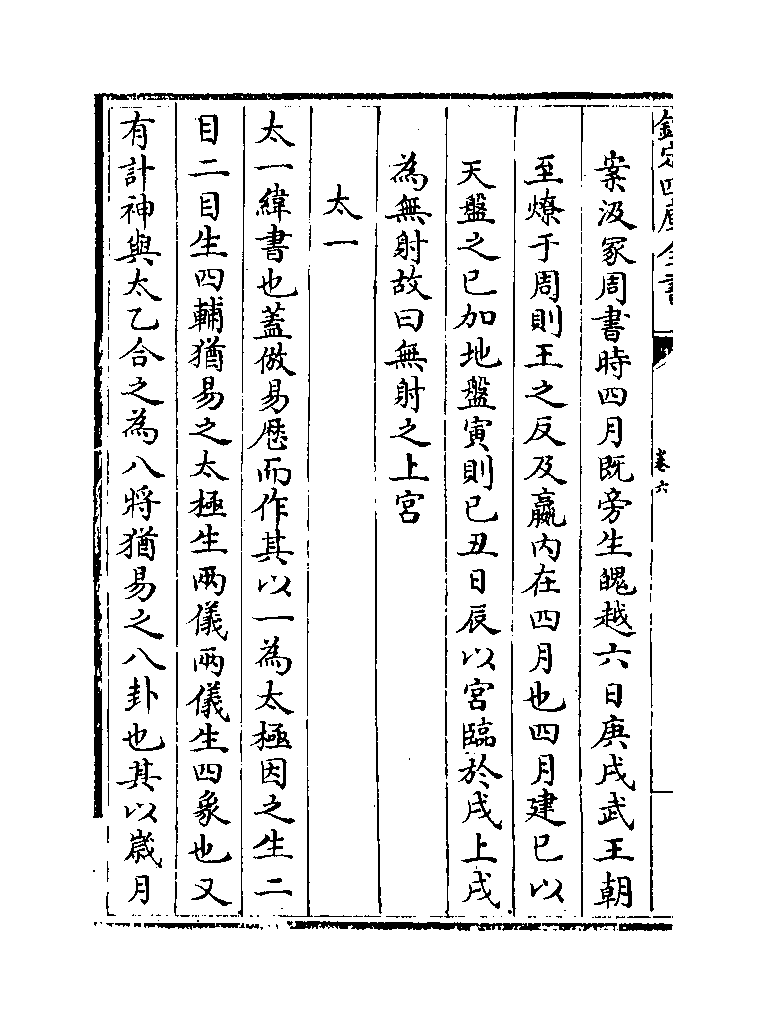 欽定四庫全書
卷六
案汲冢周書時四月既旁生魄越六日庚戌武王朝
至燎于周則王之反及嬴內在四月也四月建巳以
天盤之巳加地盤寅則巳丑日辰以宮臨於戌上戌
為無射故曰無射之上宮
太一
太一緯書也蓋倣易歴而作其以一為太極因之生二
目二目生四輔猶易之太極生兩儀兩儀生四象也又
有計神與太乙合之為八將猶易之八卦也其以歲月